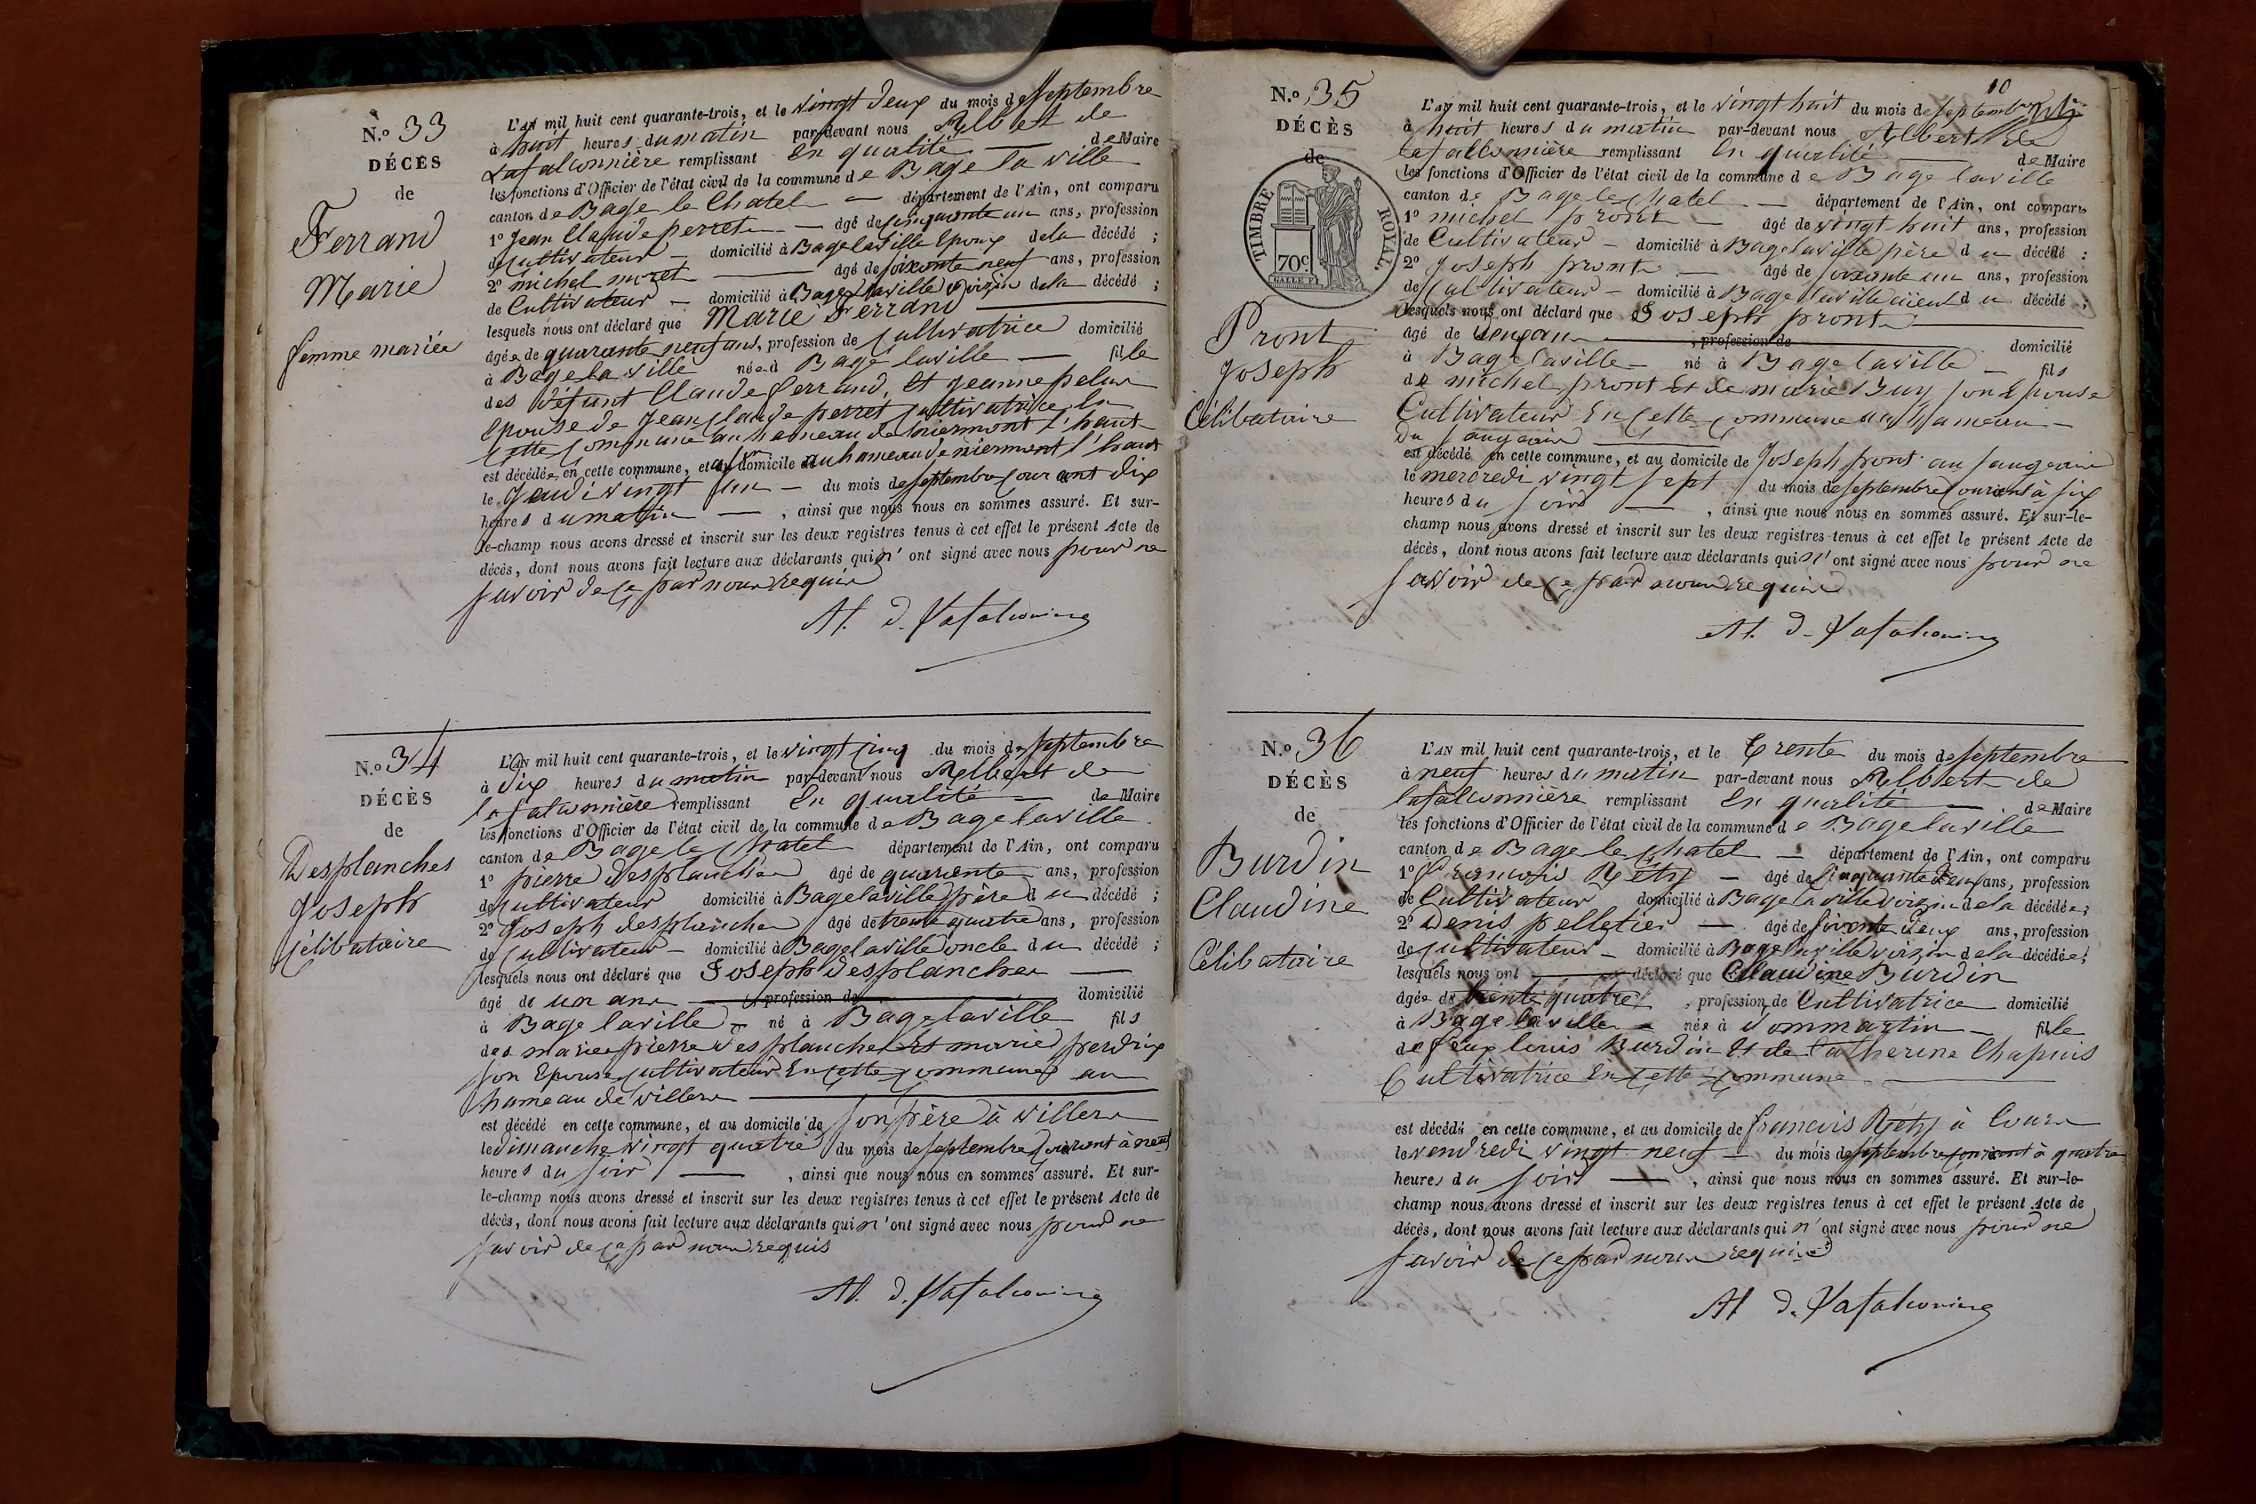 N.º 33
DÉCÈS
de
Ferrand
Marie
femme mariée
L'AN mil huit cent quarante-trois, et le vingt deux du mois de Septembre
à huit heures du matin par-devant nous Albert de
Lafalconnière remplissant En qualité de Maire
les fonctions d'Officier de l'état civil de la commune de Bage la ville
canton de Bage le Chatel département de l'Ain, ont comparu
1º Jean Claude perret âgé de cinquante un ans, profession
de Cultivateur domicilié à Bage laville Epoux dela décédé ;
2º michel muret âgé de soixante neuf ans, profession
de Cultivateur domicilié à Bage laville voisin dela décédé ;
lesquels nous ont déclaré que Marie Ferrand
âgée de quarante neuf ans, profession de Cultivatrice domicilié
à Bage la ville née à Bage laville fille
des défunt Claude ferrand, Et jeanne pelus
Epouse de Jean Claude perret Cultivatrice En
Cette Commune au hameau de niermont l'haut
est décédée en cette commune, et au domicile au hameau de niermont l'haut
le Jeudi vingt un du mois de septembre courant dix
heures du matin , ainsi que nous nous en sommes assuré. Et sur-
le-champ nous avons dressé et inscrit sur les deux registres tenus à cet effet le présent Acte de
décès, dont nous avons fait lecture aux déclarants qui n'ont signé avec nous pour ne
savoir de ce par nous requis
At. d. Lafalconnière
N.º 34
DÉCÈS
de
Desplanches
Joseph
Célibataire
L'AN mil huit cent quarante-trois, et le vingt cinq du mois de septembre
à Dix heures du matin par-devant nous Albert de
lafalconnière remplissant En qualité de Maire
les fonctions d'Officier de l'état civil de la commune de Bage laville
canton de Bage le Chatel département de l'Ain, ont comparu
1º pierre desplanches âgé de quarante ans, profession
de Cultivateur domicilié à Bage laville père du décédé ;
2º Joseph desplanches âgé de trente quatre ans, profession
de Cultivateur domicilié à Bage laville oncle du décédé ;
lesquels nous ont déclaré que Joseph desplanches
âgé de un an profession de domicilié
à Bage laville né à Bage laville fils
des mariés pierre desplanches Et marie perdrix
son Epouse Cultivateur En cette commune au
hameau de villers
est décédé en cette commune, et au domicile de son père à villers
le dimanche vingt quatre du mois de septembre courant à neuf
heures du soir , ainsi que nous nous en sommes assuré. Et sur-
le-champ nous avons dressé et inscrit sur les deux registres tenus à cet effet le présent Acte de
décès, dont nous avons fait lecture aux déclarants qui n'ont signé avec nous pour ne
savoir de ce par nous requis
At. d. Lafalconnière
10
N.º 35
DÉCÈS
de
TIMBRE ROYAL.
70c
Pront
Joseph
Célibataire
L'AN mil huit cent quarante-trois, et le vingt huit du mois de septembre
à huit heures du matin par-devant nous Albert de
lafalconnière remplissant En qualité de Maire
les fonctions d'Officier de l'état civil de la commune de Bage laville
canton de Bage le Chatel département de l'Ain, ont comparu
1º michel pront âgé de vingt huit ans, profession
de Cultivateur domicilié à Bage laville père du décédé ;
2º Joseph pront âgé de soixante un ans, profession
de Cultivateur domicilié à Bage laville aieul du décédé ;
lesquels nous ont déclaré que Joseph pront
âgé de profession de domicilié
à Bage laville né à Bage laville fils
de michel pront Et de marie Buy son Epouse
Cultivateur En Cette commune au hameau
du
est décédé en cette commune, et au domicile de Joseph pront au
le mercredi vingt sept du mois de septembre courant à six
heures du soir , ainsi que nous nous en sommes assuré. Et sur-le-
champ nous avons dressé et inscrit sur les deux registres tenus à cet effet le présent Acte de
décès, dont nous avons fait lecture aux déclarants qui n'ont signé avec nous pour ne
savoir de ce par nous requis
At. d. Lafalconnière
N.º 36
DÉCÈS
de
Burdin
Claudine
Célibataire
L'AN mil huit cent quarante-trois, et le trente du mois de septembre
à neuf heures du matin par-devant nous Albert de
lafalconnière remplissant En qualité de Maire
les fonctions d'Officier de l'état civil de la commune de Bage laville
canton de Bage le chatel département de l'Ain, ont comparu
1º francois Réty âgé de cinquante deux ans, profession
de Cultivateur domicilié à Bage laville voisin dela décédée ;
2º Denis pelletier âgé de soixante deux ans, profession
de Cultivateur domicilié à Bage laville voisin dela décédée ;
lesquels nous ont déclaré que Claudine Burdin
âgée de trente quatre , profession de Cultivatrice domicilié
à Bage laville née à dommartin fille
de feux louis Burdin Et de Catherine Chapuis
Cultivatrice En Cette Commune
est décédé en cette commune, et au domicile de francois Réty à
le vendredi vingt neuf du mois de septembre courant à quatre
heures du soir , ainsi que nous nous en sommes assuré. Et sur-le-
champ nous avons dressé et inscrit sur les deux registres tenus à cet effet le présent Acte de
décès, dont nous avons fait lecture aux déclarants qui n'ont signé avec nous pour ne
savoir de ce par nous requis
At. d. Lafalconnière